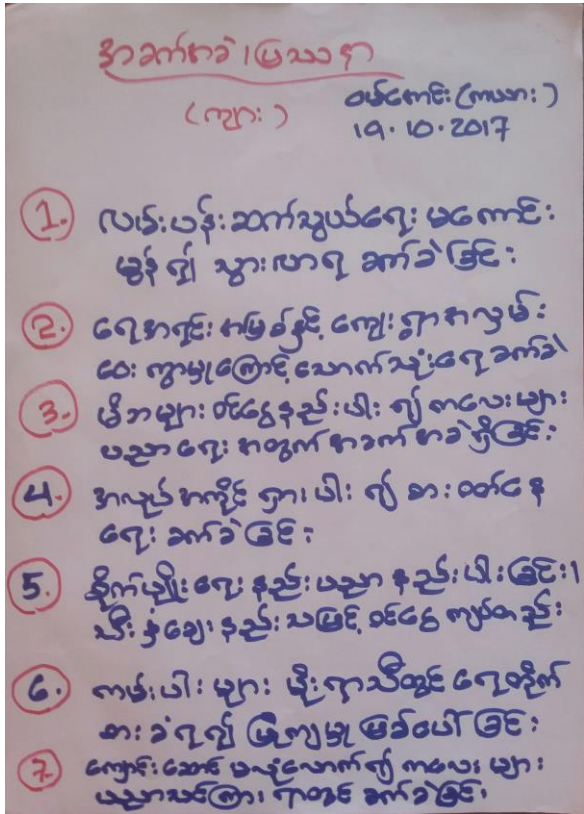 အခက်အခဲ၊ ပြဿနာ
(ကျား)
ဝမ်ကောင်း (ကယား)
19.10.2017
1. လမ်းပန်းဆက်သွယ်ရေး မကောင်း
မွန်၍ သွားလာရ ခက်ခဲခြင်း
2. ရေအရင်းအမြစ်နှင့် ကျေးရွာအလှမ်း
ဝေးကွာမှုကြောင့် သောက်သုံးရေခက်ခဲ
3. မိဘများ ဝင်ငွေနည်းပါး၍ ကလေးများ
ပညာရေးအတွက် အခက်အခဲရှိခြင်း
4. အလုပ်အကိုင် ရှားပါး၍ စားဝတ်နေ
ရေး ခက်ခဲခြင်း
5. စိုက်ပျိုးရေးနည်းပညာ နည်းပါးခြင်း၊
သီးနှံဈေးနည်းသဖြင့် ဝင်ငွေကျပ်တည်း
6. ကမ်းပါးများ မိုးရာသီတွင် ရေတိုက်
စားခံရ၍ ပြိုကျမှု ဖြစ်ပေါ်ခြင်း
7. ကျောင်းဆောင် မလုံလောက်၍ ကလေးများ
ပညာသင်ကြားရာတွင် ခက်ခဲခြင်း